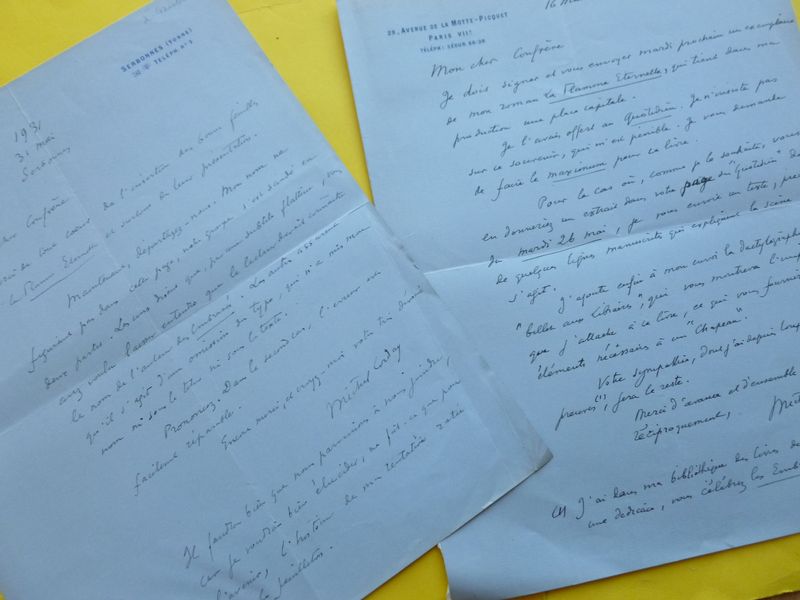 SERBONNES (YONNE)
TÉLÉPH. N° 5
1931
31 mai
Serbonnes
cher Confrère
de tout cœur de l'insertion des bonnes feuilles
la Flamme Eternelle et surtout de leur présentation.
Maintenant, départagez-nous. Mon nom ne
figurant pas dans cette page, notre groupe s'est scindé en
deux partis. Les uns disent que, par une subtile flatterie, vous
avez voulu laisser entendre que le lecteur devait connaître
le nom de l'auteur des Embrasés. Les autres assurent
qu'il s'agit d'un omission du typo, qui n'a mis mon
nom ni sous le titre ni sous le texte.
Prononcez. Dans le second cas, l'erreur est
facilement réparable.
Encore merci, et croyez-moi votre très dévoué
Michel Corday
Il faudra bien que nous parvenions à nous joindre,
car je voudrais bien élucider, ne fût-ce que pour
l'avenir, l'histoire de ma tentative ratée
feuilleton.
28, AVENUE DE LA MOTTE-PICQUET
PARIS VIIᵉ
TÉLÉPH: SÉGUR 68-39
16
Mon cher Confrère
Je dois signer et vous envoyer mardi prochain un exemplaire
de mon roman la Flamme Eternelle, qui tient dans ma
production une place capitale.
Je l'avais offert au Quotidien. Je n'insiste pas
sur ce souvenir, qui m'est pénible. Je vous demande
de faire le maximum pour ce livre.
Pour le cas où, comme je le souhaite, vous
en donneriez un extrait dans votre page du "Quotidien" du
mardi 26 mai, je vous envoie un texte,
de quelques lignes manuscrites qui expliquent la scène
s'agit.
J'ajoute enfin à mon envoi la dactylographie
"billet aux libraires", qui vous montrera
que j'attache à ce livre, ce qui vous
éléments nécessaires à un "Chapeau".
Votre sympathie, dont j'ai depuis
preuves (1), fera le reste.
Merci d'avance et d'ensemble
réciproquement,
(1) J'ai dans ma bibliothèque des livres de
une dédicace, vous célébrez les